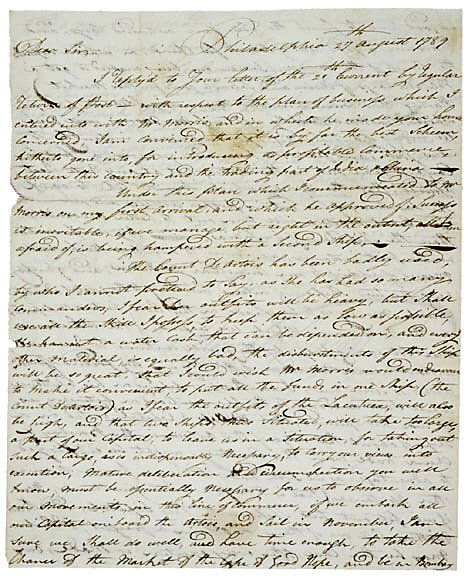 Dear Sir Philadelphia 27th August 1789
I Replyd to Your letter of the 21st Current by regular
return of Post — with respect to the plan of business which I
entered into with Mr Morris and in which he is so
concerned I am convinced that it is by far the best Scheme
hitherto gone into for introducing a Commerce
between this country and the trading part of India & China
Under this plan which I communicated to Mr
Morris on my first arrival and which he approved of, Success
is inevitable, if we manage, but explore the extent, also am
afraid of, is being hampered with a Second Ship —
The Count D'artois has been badly used,
by who I cannot pretend to say, as she has had so many
commanders, I fear her outfits will be heavy, but I shall
the Skill I possess, to keep them as low as possible
a water Cask that can be depended on, and every
other Material is equally bad, the disbursements of this Ship
will be so great, that I do wish Mr Morris would endeavor
to make it convenient to put all the Funds in one Ship (the
Count D'artois) as I fear the outfits of the will also
be high, and that two Ships Situated, will take too large
a part of our Capital to leave us in a situation, for taking out
such a Cargo, as is indispensibly Necessary, to carry our views into
execution, Mature deliberation & circumspection you well
know, must be essentially necessary for us to observe in all
our movements, in this line of Commerce, if we embark all
our Capital onboard the Artois, and Sail in November, I am
sure we Shall do well, and have time enough to take the
Chance of the Market of the Cape of Good Hope, and be in Bombay